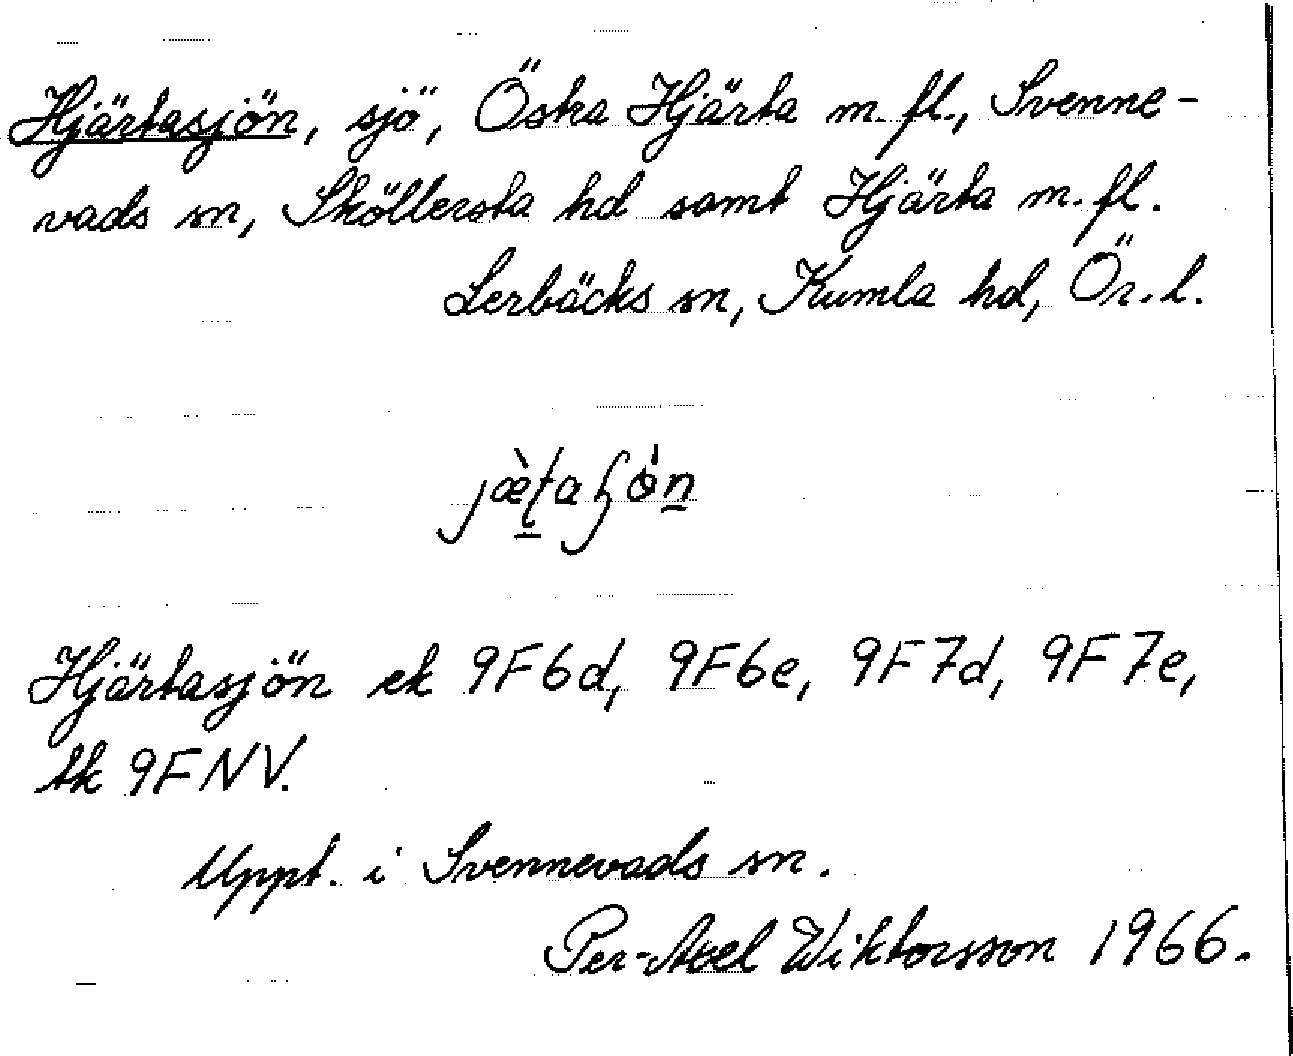 Hjärtasjön, sjö, Östra Hjärta m. fl., Svenne-
vads sn, Sköllersta hd samt Hjärta m. fl.
Lerbäcks sn, Kumla hd, Ör. l.
Hjärtasjön ek 9F6d, 9F6e, 9F7d, 9F7e,
tk 9FNV.
Uppt. i Svennevads sn.
Per-Axel Wiktorsson 1966.